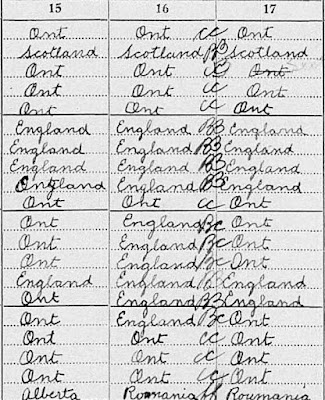 15 16 17
Ont Ont CC Ont
Scotland Scotland BB Scotland
Ont Ont CC Ont
Ont Ont CC Ont
Ont Ont CC Ont
England England BB England
England England BB England
England England BB England
England England BB England
Ont Ont CC Ont
Ont England BC Ont
Ont England BC Ont
Ont England BC Ont
England England BB England
Ont England BB England
Ont England BC Ont
Ont Ont CC Ont
Ont Ont CC Ont
Ont Ont CC Ont
Alberta Romania Roumania